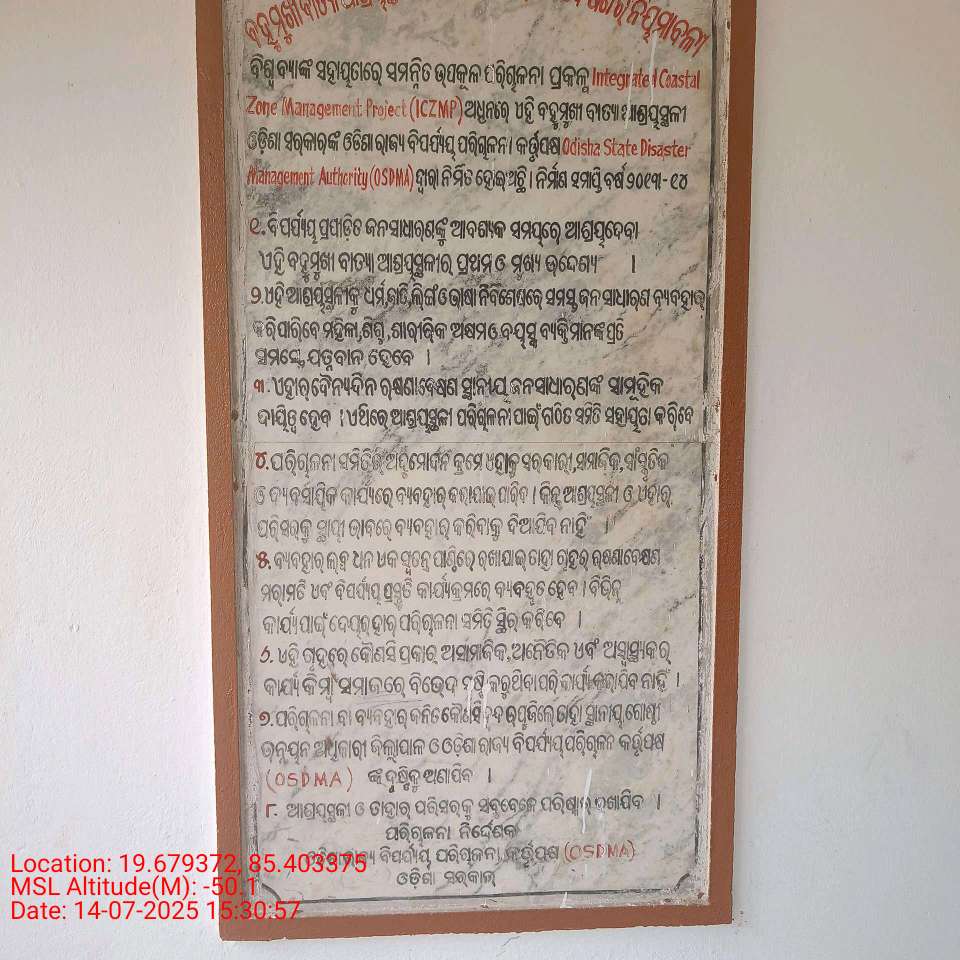 ବହୁମୁଖୀ ବାତ୍ୟା ନିୟମାବଳୀ
ବିଶ୍ୱ ବ୍ୟାଙ୍କ ସହାୟତାରେ ସମନ୍ୱିତ ଉପକୂଳ ପରିଚାଳନା ପ୍ରକଳ୍ପ Integrated Coastal
Zone Management Project (ICZMP) ଅଧୀନରେ ଏହି ବହୁମୁଖୀ ବାତ୍ୟା ଆଶ୍ରୟସ୍ଥଳୀ
ଓଡ଼ିଶା ସରକାରଙ୍କ ଓଡିଶା ରାଜ୍ୟ ବିପର୍ଯ୍ୟୟ ପରିଚାଳନା କର୍ତ୍ତୃପକ୍ଷ Odisha State Disaster
Management Authority (OSDMA) ଦ୍ୱାରା ନିର୍ମିତ ହୋଇଅଛି । ନିର୍ମାଣ ସମାପ୍ତି ବର୍ଷ ୨୦୧୩-୧୪
୧. ବିପର୍ଯ୍ୟୟ ପ୍ରପୀଡ଼ିତ ଜନସାଧାରଣଙ୍କୁ ଆବଶ୍ୟକ ସମୟରେ ଆଶ୍ରୟଦେବା
ଏହି ବହୁମୁଖୀ ବାତ୍ୟା ଆଶ୍ରୟସ୍ଥଳୀର ପ୍ରଥମ ଓ ମୁଖ୍ୟ ଉଦ୍ଦେଶ୍ୟ ।
୨. ଏହି ଆଶ୍ରୟସ୍ଥଳୀକୁ ଧର୍ମ, ଜାତି, ଲିଙ୍ଗ ଓ ଭାଷା ନିର୍ବିଶେଷରେ ସମସ୍ତ ଜନସାଧାରଣ ବ୍ୟବହାର
କରିପାରିବେ ମହିଳା, ଶିଶୁ, ଶାରୀରିକ ଅକ୍ଷମ ଓ ବୟସ୍କ ବ୍ୟକ୍ତିମାନଙ୍କ ପ୍ରତି
ସମସ୍ତେ ଯତ୍ନବାନ ହେବେ ।
୩. ଏହାର ଦୈନନ୍ଦିନ ରକ୍ଷଣାବେକ୍ଷଣ ସ୍ଥାନୀୟ ଜନସାଧାରଣଙ୍କ ସାମୂହିକ
ଦାୟିତ୍ୱ ହେବ । ଏଥିରେ ଆଶ୍ରୟସ୍ଥଳୀ ପରିଚାଳନା ପାଇଁ ଗଠିତ ସମିତି ସହାୟତା କରିବେ
୪. ପରିଚାଳନା ସମିତିର ଅନୁମୋଦନ କ୍ରମେ ଏହାକୁ ସରକାରୀ, ସାମାଜିକ, ସାଂସ୍କୃତିକ
ଓ ବ୍ୟବସାୟିକ କାର୍ଯ୍ୟରେ ବ୍ୟବହାର କରାଯାଇ ପାରିବ । କିନ୍ତୁ ଆଶ୍ରୟସ୍ଥଳୀ ଓ ଏହାର
ପରିସରକୁ ସ୍ଥାୟୀ ଭାବରେ ବ୍ୟବହାର କରିବାକୁ ଦିଆଯିବ ନାହିଁ ।
୫. ବ୍ୟବହାର ଲବ୍ଧ ଧନ ଏକ ସ୍ୱତନ୍ତ୍ର ପାଣ୍ଠିରେ ରଖାଯାଇ ତାହା ଗୃହର ରକ୍ଷଣାବେକ୍ଷଣ
ମରାମତି ଏବଂ ବିପର୍ଯ୍ୟୟ ପ୍ରସ୍ତୁତି କାର୍ଯ୍ୟକ୍ରମରେ ବ୍ୟବହୃତ ହେବ । ବିଭିନ୍ନ
କାର୍ଯ୍ୟ ପାଇଁ ଦେୟର ହାର ପରିଚାଳନା ସମିତି ସ୍ଥିର କରିବେ ।
୬. ଏହି ଗୃହରେ କୌଣସି ପ୍ରକାର ଅସାମାଜିକ, ଅନୈତିକ ଏବଂ ଅସ୍ୱାସ୍ଥ୍ୟକର
କାର୍ଯ୍ୟ କିମ୍ବା ସମାଜରେ ବିଭେଦ ସୃଷ୍ଟି କରୁଥିବା ପରି କାର୍ଯ୍ୟ କରାଯିବ ନାହିଁ ।
୭. ପରିଚାଳନା ବା ବ୍ୟବହାର ଜନିତ କୌଣସି ଦ୍ୱନ୍ଦ ଉପୁଜିଲେ ତାହା ସ୍ଥାନୀୟ ଗୋଷ୍ଠୀ
ଉନ୍ନୟନ ଅଧିକାରୀ ଜିଲ୍ଲାପାଳ ଓ ଓଡ଼ିଶା ରାଜ୍ୟ ବିପର୍ଯ୍ୟୟ ପରିଚାଳନା କର୍ତ୍ତୃପକ୍ଷ
(OSDMA) ଙ୍କ ଦୃଷ୍ଟିକୁ ଅଣାଯିବ ।
୮. ଆଶ୍ରୟସ୍ଥଳୀ ଓ ତାହାର ପରିସରକୁ ସବୁବେଳେ ପରିଷ୍କାର ରଖାଯିବ ।
ପରିଚାଳନା ନିର୍ଦ୍ଦେଶକ
ଓଡ଼ିଶା ରାଜ୍ୟ ବିପର୍ଯ୍ୟୟ ପରିଚାଳନା କର୍ତ୍ତୃପକ୍ଷ (OSDMA)
ଓଡ଼ିଶା ସରକାର
Location: 19.679372, 85.403375
MSL Altitude(M): -50.1
Date: 14-07-2025 15:30:57